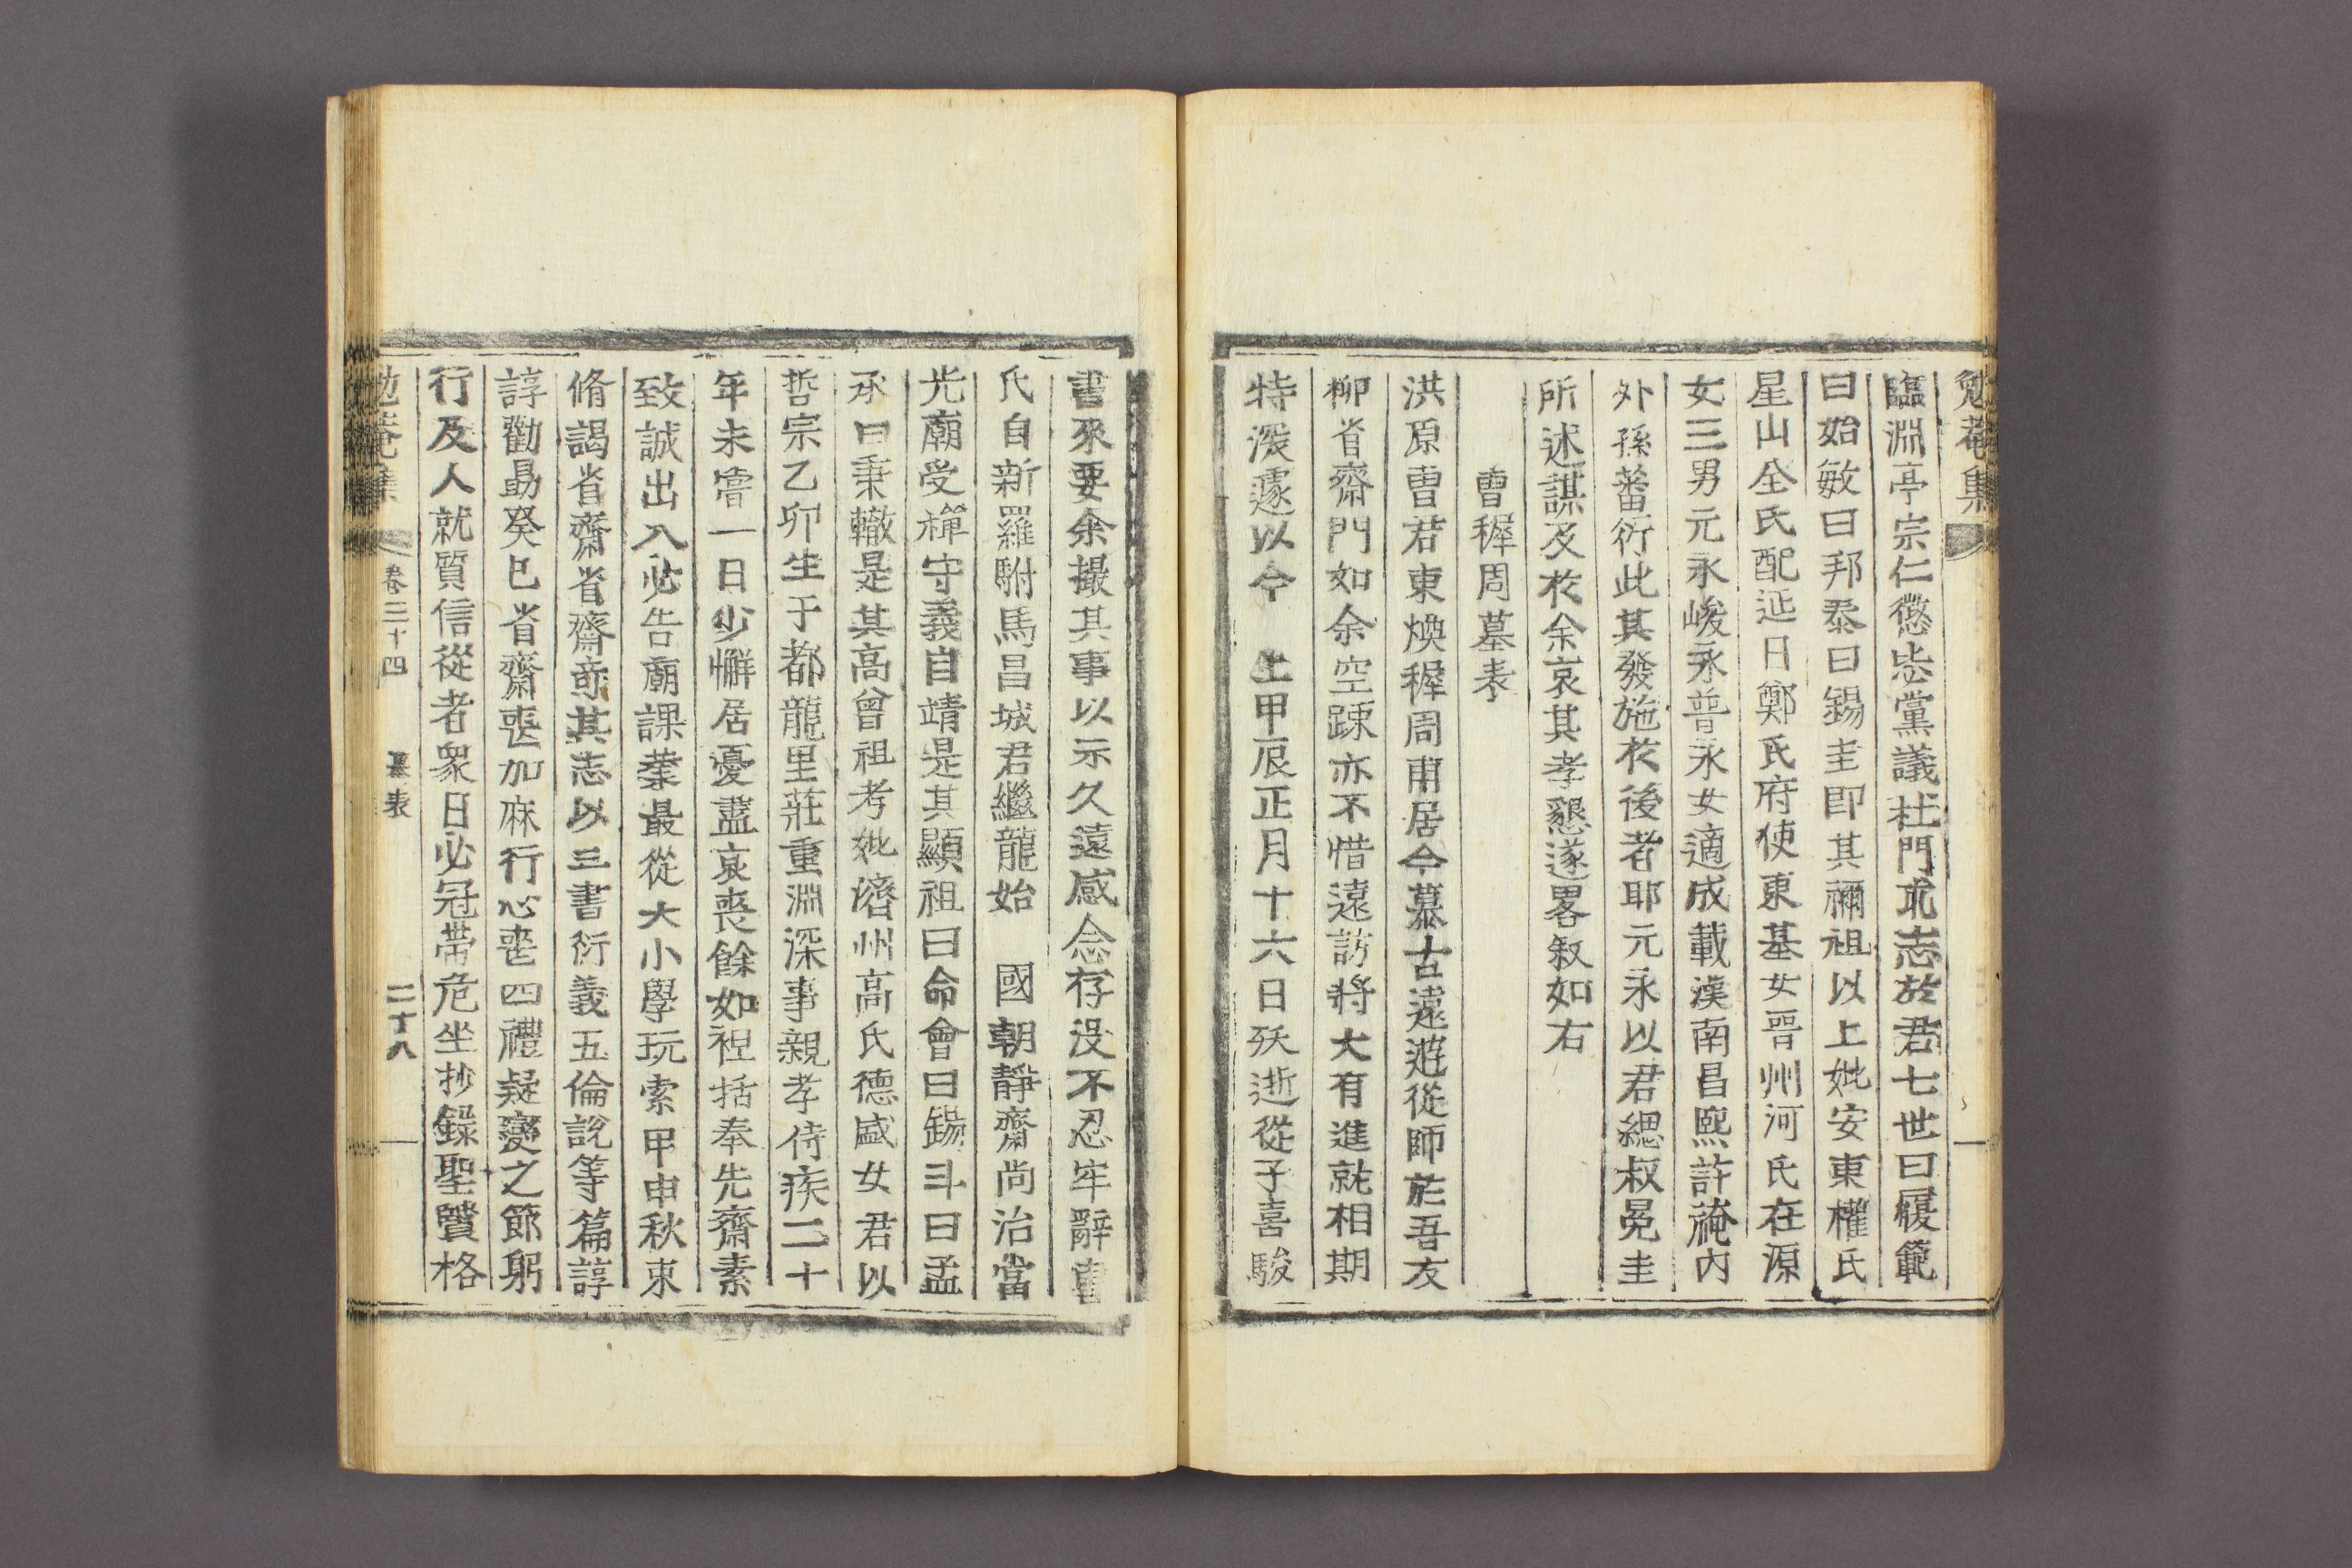 勉菴集
臨淵亭宗仁懲毖黨議杜門求志於君七世曰履範
曰始敏曰邦泰曰錫圭卽其禰祖以上妣安東權氏
星山全氏配延日鄭氏府使東基女晋州河氏在源
女三男元永峻永普永女適成載漢南昌熙許祹內
外孫蕃衍此其發施於後者耶元永以君緦叔冕圭
所述謀及於余哀其孝懇遂畧敘如右
曹穉周墓表
洪原曹君東煥穉周甫居今慕古遠遊從師於吾友
柳省齋門如余空踈亦不惜遠訪將大有進就相期
特深遽以今 上甲辰正月十六日殀逝從子喜駿
書來要余撮其事以示久遠感念存沒不忍牢辭書
氏自新羅駙馬昌城君繼龍始 國朝靜齋尚治當
光廟受禪守義自靖是其顯祖曰命會曰錫斗曰孟
承曰秉轍是其高曾祖考妣濟州高氏德盛女君以
哲宗乙卯生于都龍里莊重淵深事親孝侍疾二十
年未嘗一日少懈居憂盡哀喪餘如袒括奉先齋素
致誠出入必告廟課業最從大小學玩索甲申秋束
脩謁省齋省齋奇其志以三書衍義五倫說等篇諄
諄勸勗癸巳省齋喪加麻行心喪四禮疑變之節躬
行及人就質信從者衆日必冠帶危坐抄錄聖賢格
勉菴集 卷三十四 墓表 二十八